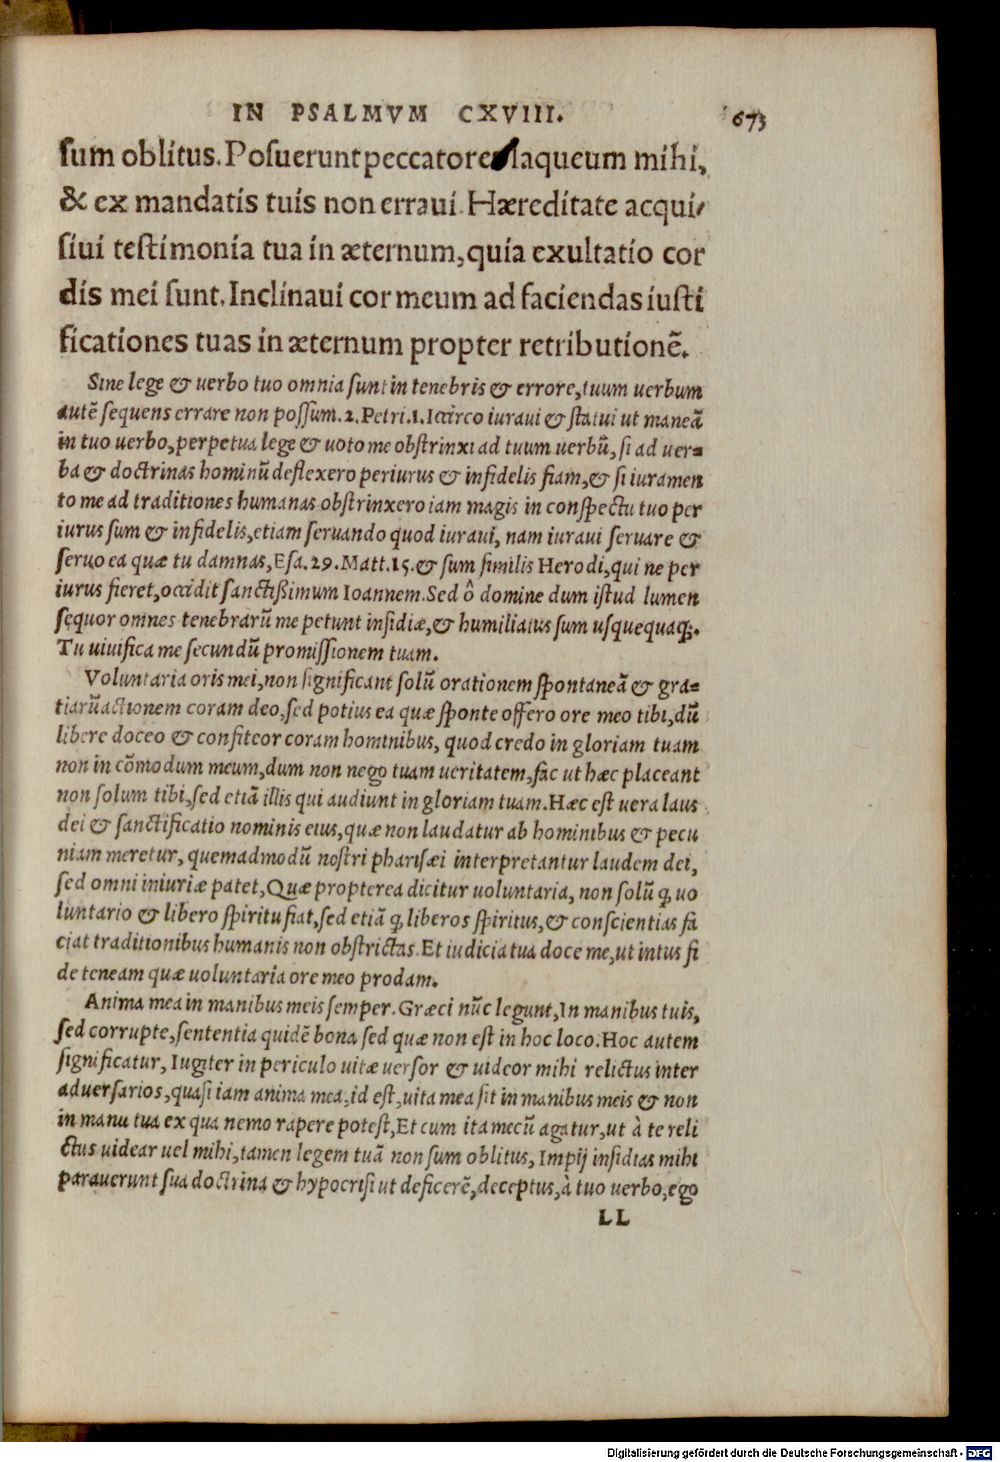 IN PSALMVM CXVIII. 673
sum oblitus. Posuerunt peccatores laqueum mihi,
& ex mandatis tuis non erraui. Hæreditate acqui/
siui testimonia tua in æternum, quia exultatio cor
dis mei sunt. Inclinaui cor meum ad faciendas iusti
ficationes tuas in æternum propter retributionẽ.
Sine lege & uerbo tuo omnia sunt in tenebris & errore, tuum uerbum
autẽ sequens errare non possum. 2. Petri. 1. Iccirco iuraui & statui ut maneã
in tuo uerbo, perpetua lege & uoto me obstrinxi ad tuum uerbũ, si ad uer=
ba & doctrinas hominũ deflexero periurus & infidelis fiam, & si iuramen
to me ad traditiones humanas obstrinxero iam magis in conspectu tuo per
iurus sum & infidelis, etiam seruando quod iuraui, nam iuraui seruare &
seruo ea quæ tu damnas, Esa. 29. Matt. 15. & sum similis Herodi, qui ne per
iurus fieret, occidit sanctißimum Ioannem. Sed ô domine dum istud lumen
sequor omnes tenebrarũ me petunt insidiæ, & humiliatus sum usquequaq;.
Tu uiuifica me secundũ promissionem tuam.
Voluntaria oris mei, non significant solũ orationem spontaneã & gra=
tiarũ actionem coram deo, sed potius ea quæ sponte offero ore meo tibi, dũ
libere doceo & confiteor coram hominibus, quod credo in gloriam tuam
non in cõmodum meum, dum non nego tuam ueritatem, fac ut hæc placeant
non solum tibi, sed etiã illis qui audiunt in gloriam tuam. Hæc est uera laus
dei & sanctificatio nominis eius, quæ non laudatur ab hominibus & pecu
niam meretur, quemadmodũ nostri pharisæi interpretantur laudem dei,
sed omni iniuriæ patet, Quæ propterea dicitur uoluntaria, non solũ ꝙ uo
luntario & libero spiritu fiat, sed etiã ꝙ liberos spiritus, & conscientias fa
ciat traditionibus humanis non obstrictas. Et iudicia tua doce me, ut intus fi
de teneam quæ uoluntaria ore meo prodam.
Anima mea in manibus meis semper. Græci nũc legunt, In manibus tuis,
sed corrupte, sententia quidẽ bona sed quæ non est in hoc loco. Hoc autem
significatur, Iugiter in periculo uitæ uersor & uideor mihi relictus inter
aduersarios, quasi iam anima mea, id est, uita mea sit in manibus meis & non
in manu tua ex qua nemo rapere potest, Et cum ita mecũ agatur, ut à te reli
ctus uidear uel mihi, tamen legem tuã non sum oblitus, Impij insidias mihi
parauerunt sua doctrina & hypocrisi ut deficerẽ, deceptus, à tuo uerbo, ego
LL
Digitalisierung gefördert durch die Deutsche Forschungsgemeinschaft - DFG